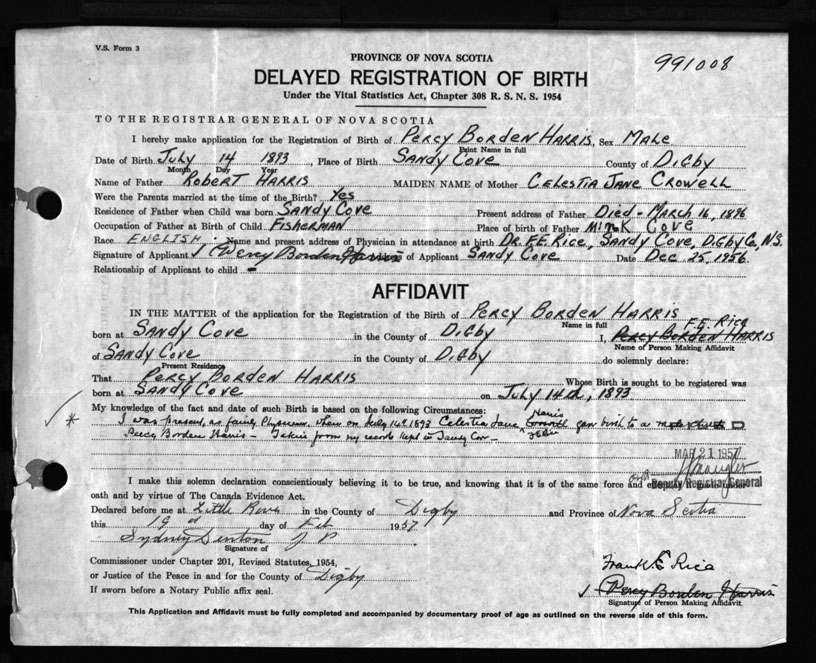 V.S. Form 3
991008
PROVINCE OF NOVA SCOTIA
DELAYED REGISTRATION OF BIRTH
Under the Vital Statistics Act, Chapter 308 R. S. N. S. 1954
TO THE REGISTRAR GENERAL OF NOVA SCOTIA
I hereby make application for the Registration of Birth of PERCY BORDEN HARRIS, Sex MALE
Print Name in full
Date of Birth July 14 1893, Place of Birth SANDY COVE County of DIGBY
Month Day Year
Name of Father ROBERT HARRIS MAIDEN NAME of Mother CELESTIA JANE CROWELL
Were the Parents married at the time of the Birth? Yes
Residence of Father when Child was born SANDY COVE Present address of Father DIED - MARCH 16, 1896
Occupation of Father at Birth of Child FISHERMAN Place of birth of Father MINK COVE
Race ENGLISH Name and present address of Physician in attendance at birth DR. F.E. RICE, SANDY COVE, DIGBY CO, N.S.
Signature of Applicant Percy Borden Harris of Applicant SANDY COVE Date DEC. 25, 1956.
Relationship of Applicant to child -
AFFIDAVIT
IN THE MATTER of the application for the Registration of the Birth of PERCY BORDEN HARRIS
Name in full F.E. Rice
born at SANDY COVE in the County of DIGBY I, PERCY BORDEN HARRIS
Name of Person Making Affidavit
of SANDY COVE in the County of DIGBY do solemnly declare:
Present Residence
That PERCY BORDEN HARRIS Whose Birth is sought to be registered was
born at SANDY COVE on July 14th, 1893
My knowledge of the fact and date of such Birth is based on the following Circumstances:
Harris
* I was present, as family Physician, when on July 14th 1893 Celestia Jane gave birth to a
Percy Borden Harris - Taken from my records kept in Sandy Cove -
MAR 21 1957
I make this solemn declaration conscientiously believing it to be true, and knowing that it is of the same force and
Deputy Registrar General
oath and by virtue of The Canada Evidence Act.
Declared before me at Little River in the County of Digby and Province of Nova Scotia
this 19 day of Feb 1957
Sydney Denton J P
Signature of
Commissioner under Chapter 201, Revised Statutes, 1954,
or Justice of the Peace in and for the County of Digby
If sworn before a Notary Public affix seal.
Frank E Rice
Percy Borden Harris
Signature of Person Making Affidavit
This Application and Affidavit must be fully completed and accompanied by documentary proof of age as outlined on the reverse side of this form.